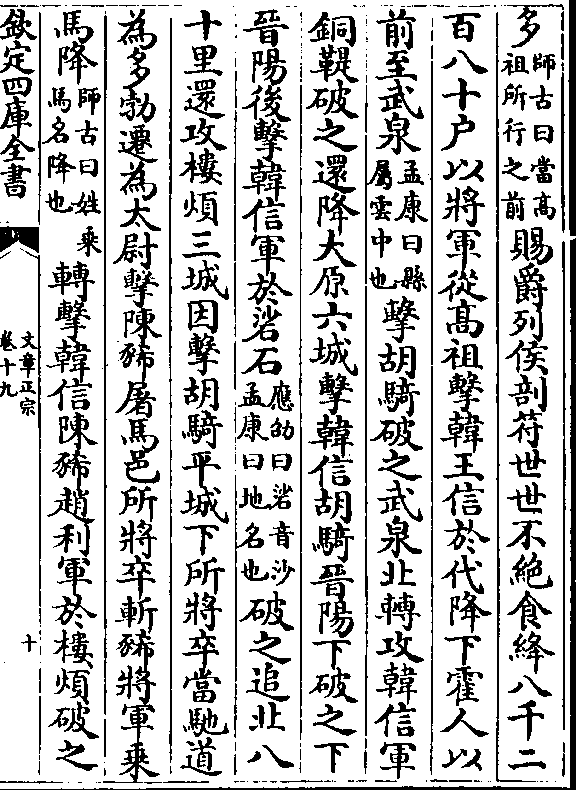 多師古曰當高祖所行之前賜爵列侯剖符世世不絶食絳八千二
百八十户以將軍從高祖擊韓王信於代降下霍人以
前至武泉孟康曰縣屬雲中也擊胡騎破之武泉北轉攻韓信軍
銅鞮破之還降大原六城擊韓信胡騎晉陽下破之下
晉陽後擊韓信軍於硰石應劭曰硰音沙孟康曰地名也破之追北八
十里還攻樓煩三城因擊胡騎平城下所將卒當馳道
為多勃遷為太尉擊陳豨屠馬邑所將卒斬豨將軍乗
馬降師古曰姓乗馬名降也轉擊韓信陳豨趙利軍於樓煩破之
欽定四庫全書
文章正宗
卷十九
十